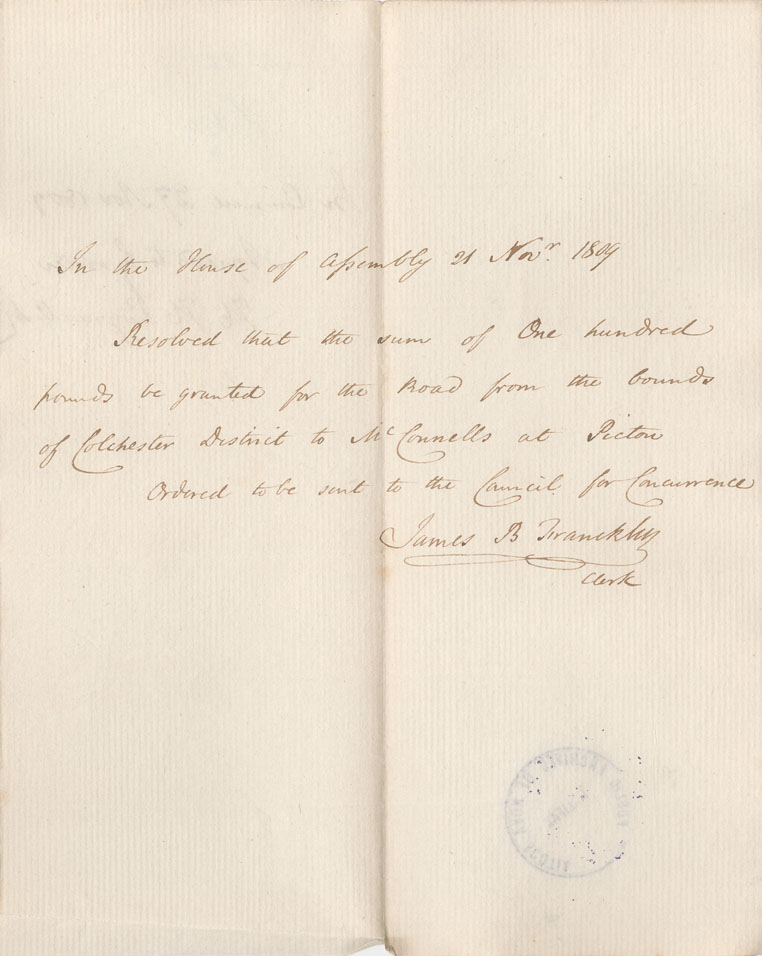 In the House of Assembly 21 Novr. 1809
Resolved that the sum of One hundred
pounds be granted for the Road from the bounds
of Colchester District to McConnells at Pictou
Ordered to be sent to the Council for Concurrence
James B Franckly
Clerk
PUBLIC ARCHIVES OF NOVA SCOTIA